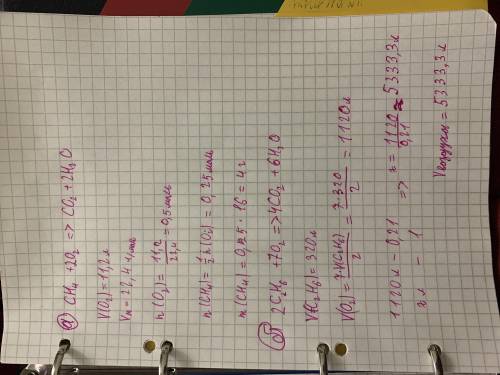 а) CH₄ + 2O₂ => CO₂ + 2H₂O
V(O₂) = 11,2 л
Vₘ = 22,4 л/моль
n(O₂) = 11,2 / 22,4 = 0,5 моль
n(CH₄) = 1/2 n(O₂) = 0,25 моль
m(CH₄) = 0,25 · 16 = 4 г
б) 2C₂H₆ + 7O₂ => 4CO₂ + 6H₂O
V(C₂H₆) = 320 л
V(O₂) = 7·V(C₂H₆) / 2 = 7·320 / 2 = 1120 л
1120 л - 0,21
x л - 1 => x = 1120 / 0,21 ≈ 5333,3 л
Vвоздуха = 5333,3 л